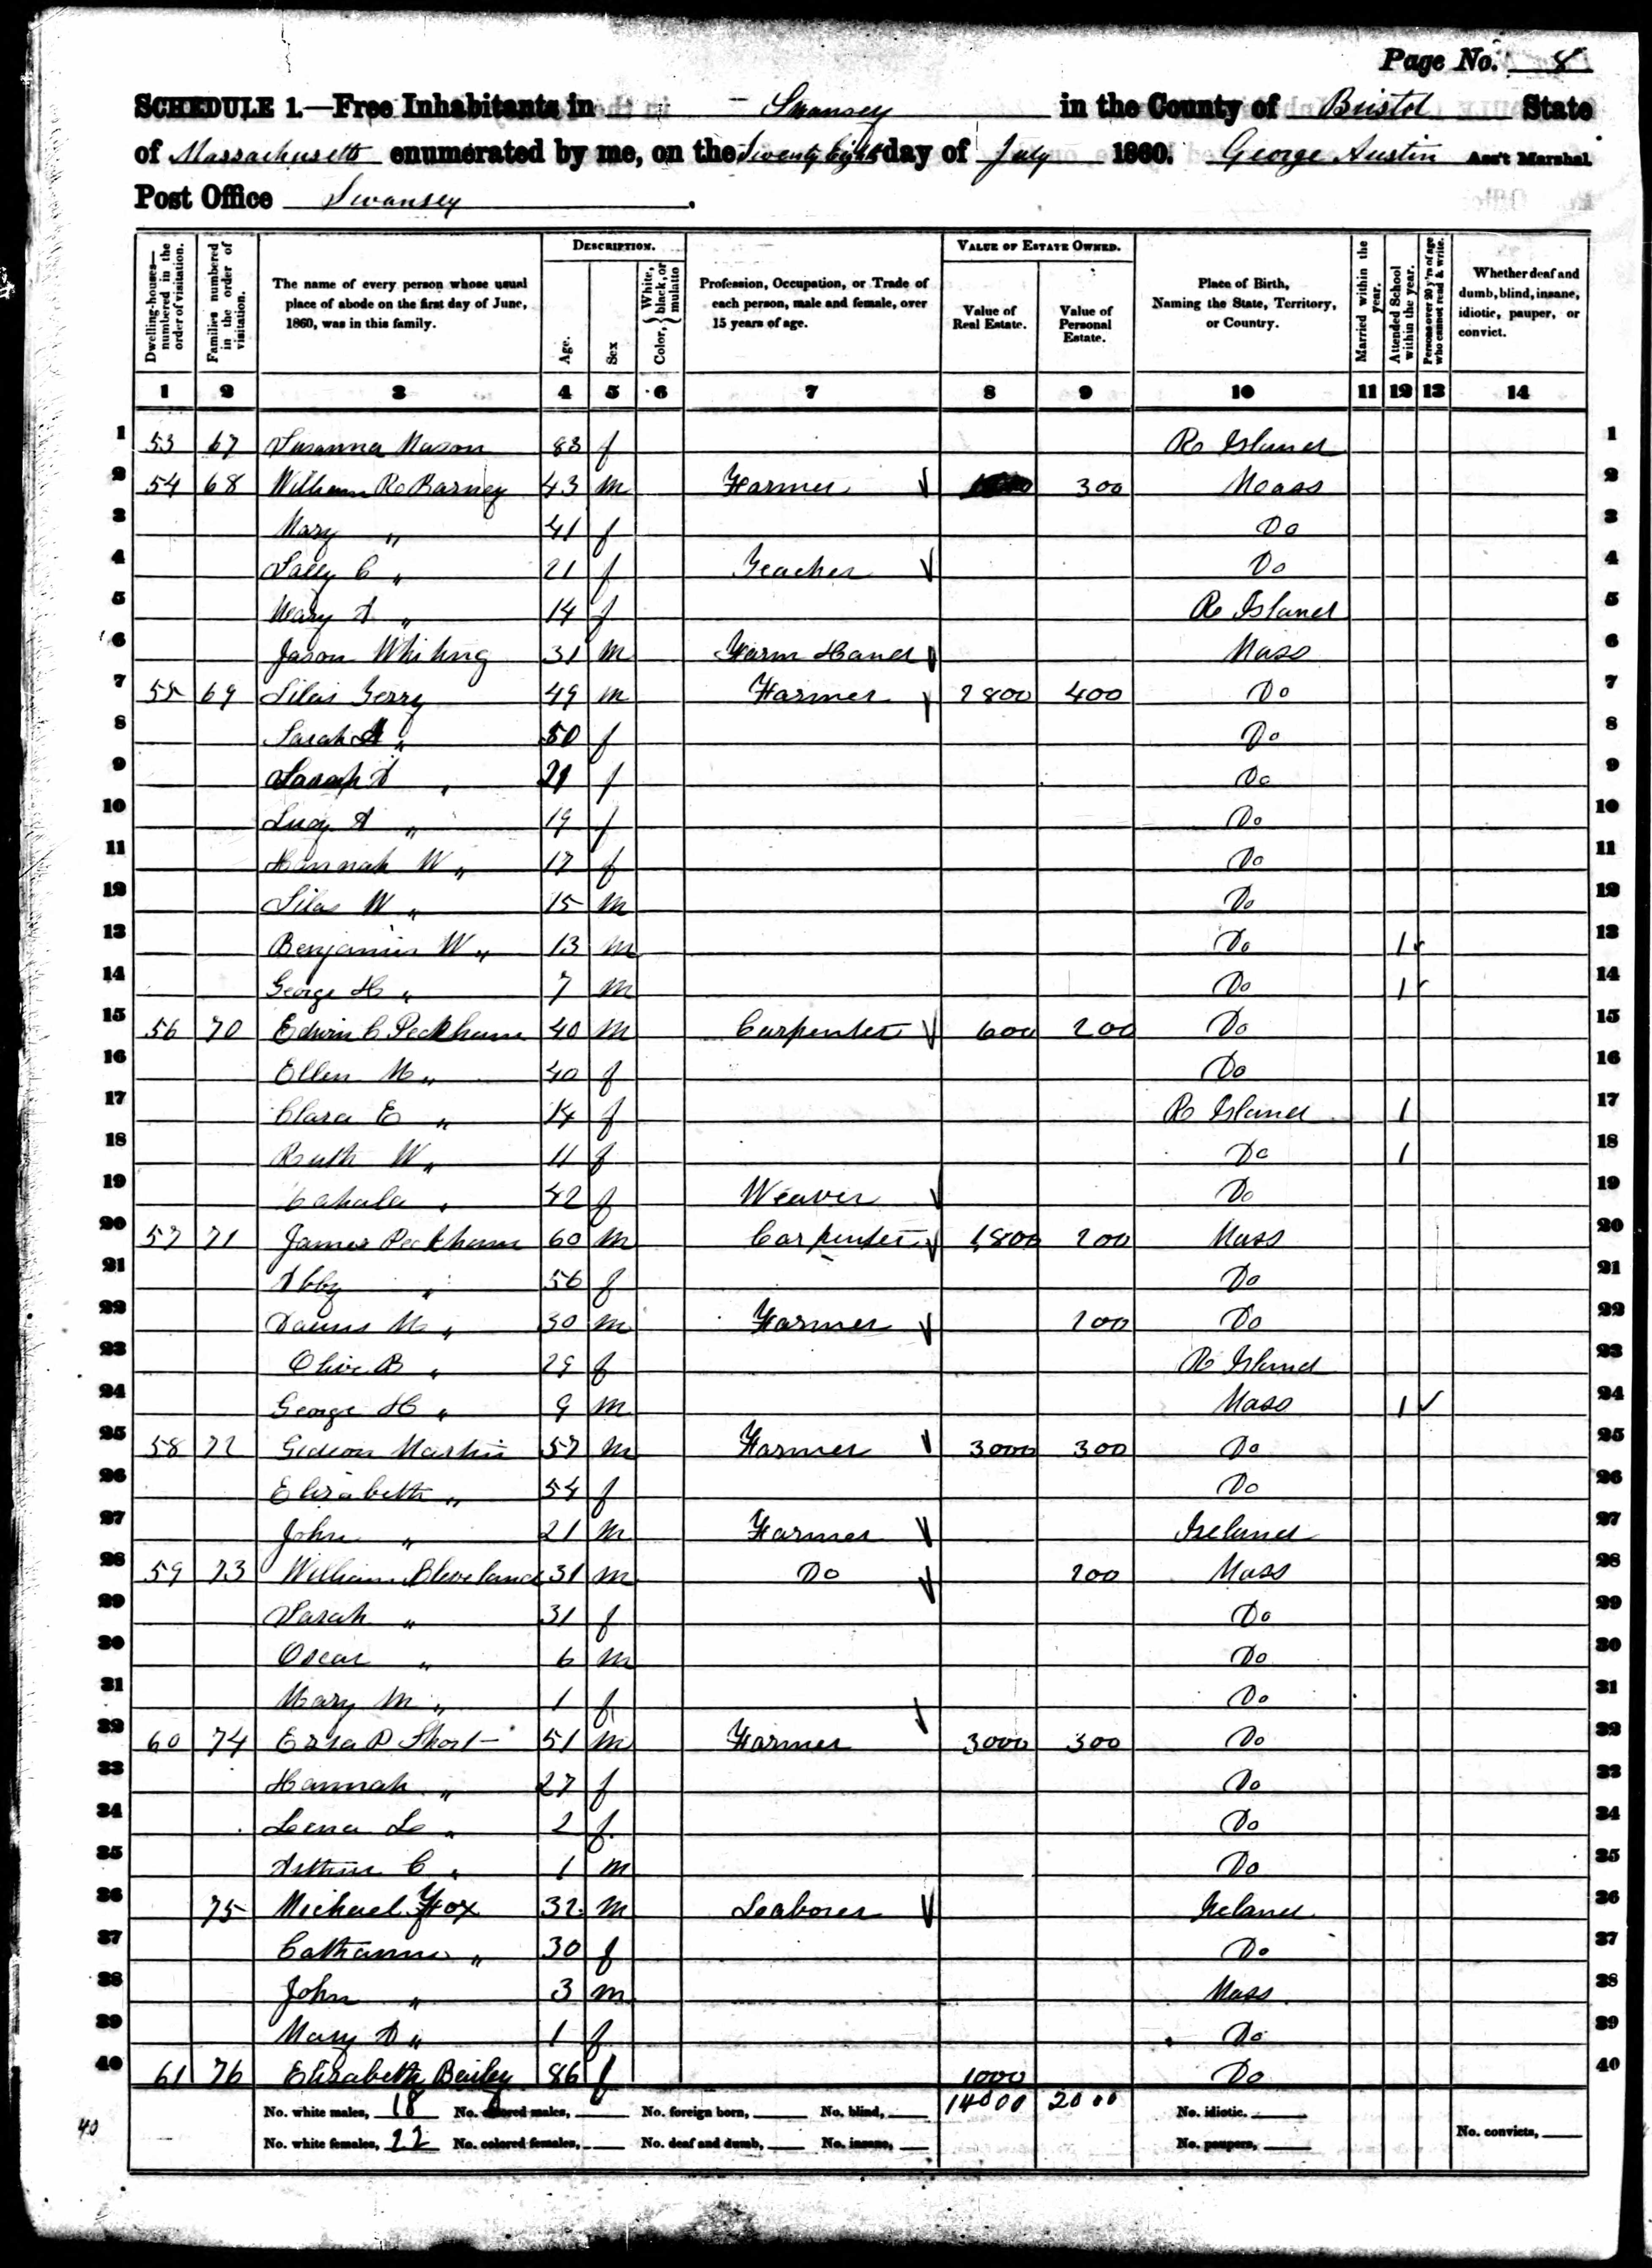 Page No. 8
SCHEDULE 1.—Free Inhabitants in Swansey in the County of Bristol State
of Massachusetts enumerated by me, on the Twenty eight day of July 1860. George Austin Ass't Marshal.
Post Office Swansey.
Dwelling-houses—numbered in the order of visitation. Families numbered in the order of visitation. The name of every person whose usual place of abode on the first day of June, 1860, was in this family. DESCRIPTION. Age. Sex Color, White, black, or mulatto Profession, Occupation, or Trade of each person, male and female, over 15 years of age. VALUE OF ESTATE OWNED. Value of Real Estate. Value of Personal Estate. Place of Birth, Naming the State, Territory, or Country. Married within the year. Attended School within the year. Persons over 20 y'rs of age who cannot read & write. Whether deaf and dumb, blind, insane, idiotic, pauper, or convict.
1 2 3 4 5 6 7 8 9 10 11 12 13 14
1 53 67 Susanna Mason 83 f R Island 1
2 54 68 William R Barney 43 m Farmer 300 Mass 2
3 Mary " 41 f Do 3
4 Sally C " 21 f Teacher Do 4
5 Mary A " 14 f R Island 5
6 Jason Whiting 31 m Farm Hand Mass 6
7 55 69 Silas Terry 49 m Farmer 2800 400 Do 7
8 Sarah " 50 f Do 8
9 Sarah A " 21 f Do 9
10 Lucy A " 19 f Do 10
11 Hannah W " 17 f Do 11
12 Silas W " 15 m Do 12
13 Benjamin W " 13 m Do 1 13
14 George H " 7 m Do 1 14
15 56 70 Edwin C Peckham 40 m Carpenter 600 200 Do 15
16 Ellen M " 40 f Do 16
17 Clara E " 14 f R Island 1 17
18 Ruth W " 11 f Do 1 18
19 " 42 f Weaver Do 19
20 57 71 James Peckham 60 m Carpenter 1,800 200 Mass 20
21 Abby " 56 f Do 21
22 M " 30 m Farmer 200 Do 22
23 Olive B " 29 f R Island 23
24 George H " 9 m Mass 1 24
25 58 72 Gideon Martin 57 m Farmer 3000 300 Do 25
26 Elizabeth " 54 f Do 26
27 John " 21 m Farmer Ireland 27
28 59 73 William Cleveland 31 m Do 200 Mass 28
29 Sarah " 31 f Do 29
30 Oscar " 6 m Do 30
31 Mary M " 1 f Do 31
32 60 74 Ezra P Short 51 m Farmer 3000 300 Do 32
33 Hannah " 27 f Do 33
34 Leena L " 2 f Do 34
35 Arthur C " 1 m Do 35
36 75 Michael Fox 32 m Laborer Ireland 36
37 Catharine " 30 f Do 37
38 John " 3 m Mass 38
39 Mary A " 1 f Do 39
40 61 76 Elizabeth Bailey 86 f 1000 Do 40
40 No. white males, 18 No. colored males, No. foreign born, No. blind, 14000 2000 No. idiotic.
No. white females, 22 No. colored females, No. deaf and dumb, No. insane, No. paupers, No. convicts,